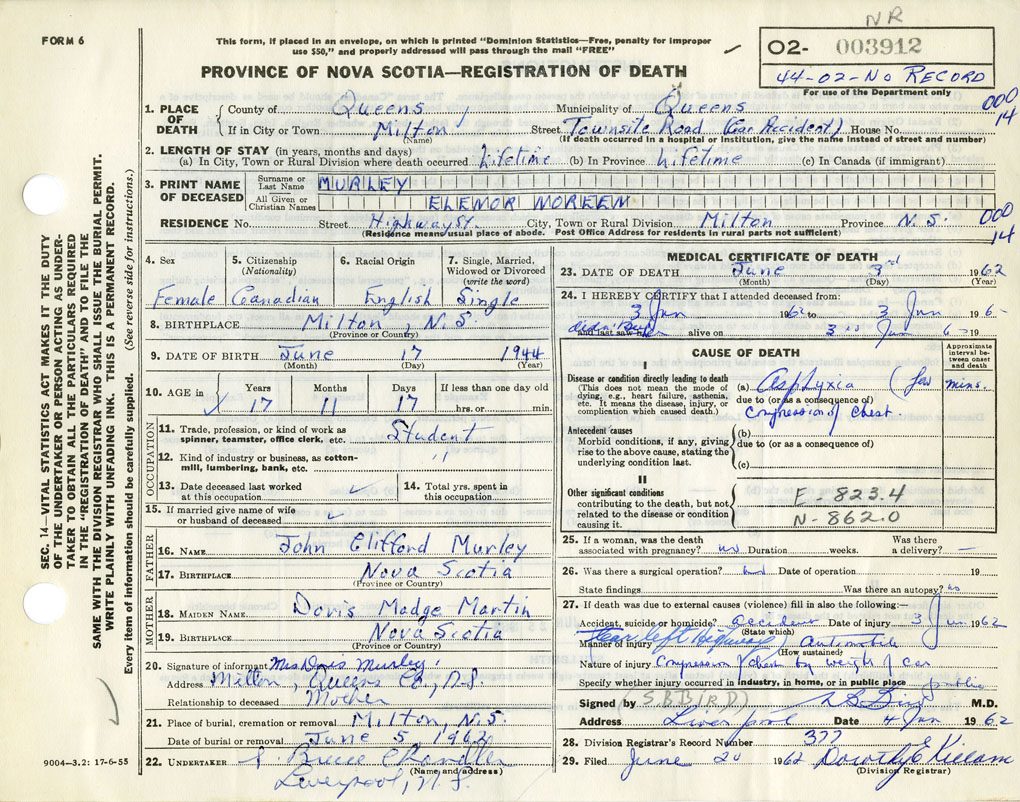 NR
FORM 6
This form, if placed in an envelope, on which is printed "Dominion Statistics—Free, penalty for improper
use $50," and properly addressed will pass through the mail "FREE"
O2- 003912
44-02-No RECORD
For use of the Department only
PROVINCE OF NOVA SCOTIA—REGISTRATION OF DEATH
1. PLACE OF DEATH
County of Queens Municipality of Queens
000
14
If in City or Town Milton Street Townsite Road (Car Accident) House No.
(Name) (If death occurred in a hospital or institution, give the name instead of street and number)
2. LENGTH OF STAY (in years, months and days)
(a) In City, Town or Rural Division where death occurred Lifetime (b) In Province Lifetime (c) In Canada (if immigrant)
3. PRINT NAME OF DECEASED
Surname or Last Name MURLEY
All Given or Christian Names ELENOR NOREEN
RESIDENCE No. Street Highway St. City, Town or Rural Division Milton Province N.S.
(Residence means usual place of abode. Post Office Address for residents in rural parts not sufficient)
000
14
4. Sex Female
5. Citizenship (Nationality) Canadian
6. Racial Origin English
7. Single, Married, Widowed or Divorced (write the word) Single
8. BIRTHPLACE Milton, N.S.
(Province or Country)
9. DATE OF BIRTH June 17 1944
(Month) (Day) (Year)
10. AGE in Years Months Days If less than one day old
17 11 17 hrs. or min.
OCCUPATION
11. Trade, profession, or kind of work as
spinner, teamster, office clerk, etc. Student
12. Kind of industry or business, as cotton-
mill, lumbering, bank, etc. "
13. Date deceased last worked
at this occupation
14. Total yrs. spent in
this occupation
15. If married give name of wife
or husband of deceased
FATHER
16. NAME John Clifford Murley
17. BIRTHPLACE Nova Scotia
(Province or Country)
MOTHER
18. MAIDEN NAME Doris Madge Martin
19. BIRTHPLACE Nova Scotia
(Province or Country)
20. Signature of informant Mrs Doris Murley
Address Milton, Queens Co., N.S.
Relationship to deceased Mother
21. Place of burial, cremation or removal Milton, N.S.
Date of burial or removal June 5 1962
22. UNDERTAKER Bruce Chandler
(Name and address)
Liverpool, N.S.
MEDICAL CERTIFICATE OF DEATH
23. DATE OF DEATH June 3rd 1962
(Month) (Day) (Year)
24. I HEREBY CERTIFY that I attended deceased from:
3 Jun 1962 to 3 Jun 196
and last saw alive on 3 Jun 6 19
CAUSE OF DEATH
Approximate interval between onset and death
I
Disease or condition directly leading to death
(This does not mean the mode of
dying, e.g., heart failure, asthenia,
etc. It means the disease, injury, or
complication which caused death.)
(a) Asphyxia (few mins.
due to (or as a consequence of)
Compression of chest
Antecedent causes
Morbid conditions, if any, giving
rise to the above cause, stating the
underlying condition last.
(b)
due to (or as a consequence of)
(c)
II
Other significant conditions
contributing to the death, but not
related to the disease or condition
causing it.
E-823.4
N-862.0
25. If a woman, was the death
associated with pregnancy? no Duration weeks. Was there
a delivery? —
26. Was there a surgical operation? no Date of operation 19
State findings Was there an autopsy? no
27. If death was due to external causes (violence) fill in also the following:—
Accident, suicide or homicide? accident Date of injury 3 Jun 1962
(State which)
(car left Highway)
Manner of injury Automobile
(How sustained)
Nature of injury Compression of chest by weight of car
Specify whether injury occurred in industry, in home, or in public place public
Signed by S.B.B (R.D) M.D.
Address Liverpool Date 4 Jun 1962
28. Division Registrar's Record Number 377
29. Filed June 20 1962 Dorothy E Killam
(Division Registrar)
SEC. 14—VITAL STATISTICS ACT MAKES IT THE DUTY
OF THE UNDERTAKER OR PERSON ACTING AS UNDER-
TAKER TO OBTAIN ALL THE PARTICULARS REQUIRED
IN THE "REGISTRATION OF DEATH" AND TO FILE THE
SAME WITH THE DIVISION REGISTRAR WHO SHALL ISSUE THE BURIAL PERMIT.
WRITE PLAINLY WITH UNFADING INK. THIS IS A PERMANENT RECORD.
Every item of information should be carefully supplied. (See reverse side for instructions.)
9004—3.2: 17-6-55